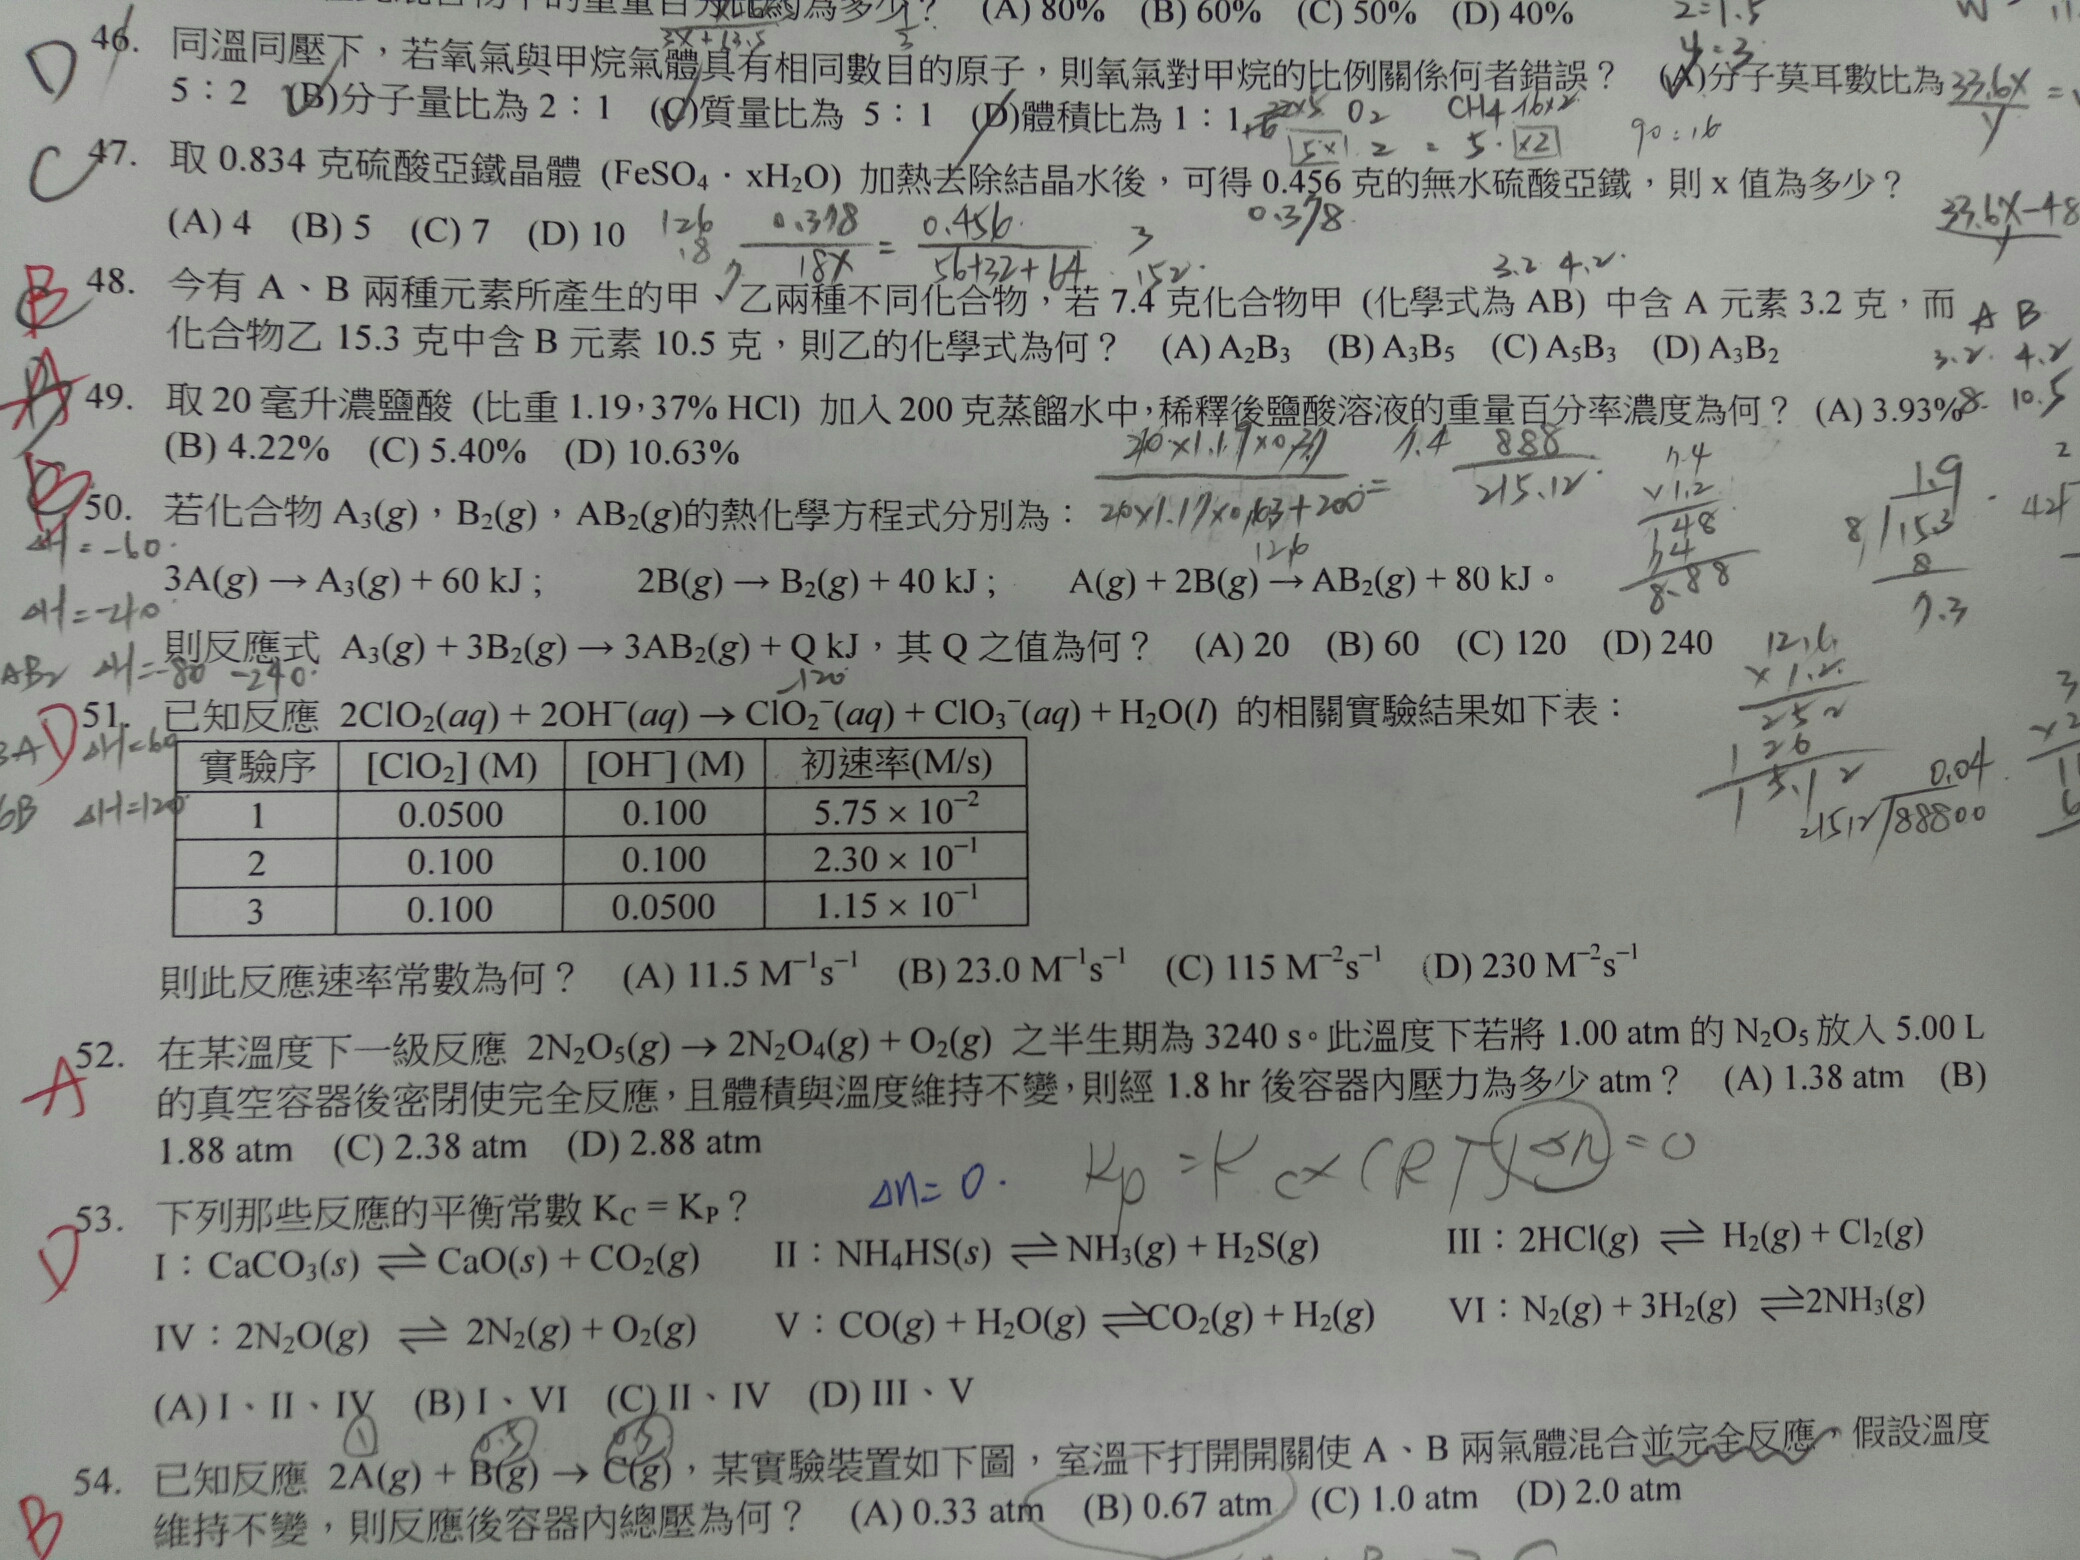 (A) 80% (B) 60% (C) 50% (D) 40%
D 46. 同溫同壓下，若氧氣與甲烷氣體具有相同數目的原子，則氧氣對甲烷的比例關係何者錯誤？ (A)分子莫耳數比為
5：2 (B)分子量比為 2：1 (C)質量比為 5：1 (D)體積比為 1：1
C 47. 取 0.834 克硫酸亞鐵晶體 (FeSO₄・xH₂O) 加熱去除結晶水後，可得 0.456 克的無水硫酸亞鐵，則 x 值為多少？
0.378
(A) 4 (B) 5 (C) 7 (D) 10
0.378/18X = 0.456/56+32+64
152
3.2 4.2
B 48. 今有 A、B 兩種元素所產生的甲、乙兩種不同化合物，若 7.4 克化合物甲 (化學式為 AB) 中含 A 元素 3.2 克，而
A B
化合物乙 15.3 克中含 B 元素 10.5 克，則乙的化學式為何？ (A) A₂B₃ (B) A₃B₅ (C) A₅B₃ (D) A₃B₂
3.2 4.2
A 49. 取 20 毫升濃鹽酸 (比重 1.19，37% HCl) 加入 200 克蒸餾水中，稀釋後鹽酸溶液的重量百分率濃度為何？ (A) 3.93%
8 10.5
(B) 4.22% (C) 5.40% (D) 10.63%
B 50. 若化合物 A₃(g)，B₂(g)，AB₂(g)的熱化學方程式分別為：
ΔH=-60
3A(g) → A₃(g) + 60 kJ； 2B(g) → B₂(g) + 40 kJ； A(g) + 2B(g) → AB₂(g) + 80 kJ。
則反應式 A₃(g) + 3B₂(g) → 3AB₂(g) + Q kJ，其 Q 之值為何？ (A) 20 (B) 60 (C) 120 (D) 240
AB₂ ΔH=-80 -240
-120
D 51. 已知反應 2ClO₂(aq) + 2OH⁻(aq) → ClO₂⁻(aq) + ClO₃⁻(aq) + H₂O(l) 的相關實驗結果如下表：
3A ΔH=60
實驗序 [ClO₂] (M) [OH⁻] (M) 初速率(M/s)
6B ΔH=120
1 0.0500 0.100 5.75 × 10⁻²
2 0.100 0.100 2.30 × 10⁻¹
3 0.100 0.0500 1.15 × 10⁻¹
則此反應速率常數為何？ (A) 11.5 M⁻¹s⁻¹ (B) 23.0 M⁻¹s⁻¹ (C) 115 M⁻²s⁻¹ (D) 230 M⁻²s⁻¹
A 52. 在某溫度下一級反應 2N₂O₅(g) → 2N₂O₄(g) + O₂(g) 之半生期為 3240 s。此溫度下若將 1.00 atm 的 N₂O₅ 放入 5.00 L
的真空容器後密閉使完全反應，且體積與溫度維持不變，則經 1.8 hr 後容器內壓力為多少 atm？ (A) 1.38 atm (B)
1.88 atm (C) 2.38 atm (D) 2.88 atm
Δn=0. Kp=Kc×(RT)Δn=0
D 53. 下列那些反應的平衡常數 K_C = K_P？
I：CaCO₃(s) ⇌ CaO(s) + CO₂(g) II：NH₄HS(s) ⇌ NH₃(g) + H₂S(g) III：2HCl(g) ⇌ H₂(g) + Cl₂(g)
IV：2N₂O(g) ⇌ 2N₂(g) + O₂(g) V：CO(g) + H₂O(g) ⇌ CO₂(g) + H₂(g) VI：N₂(g) + 3H₂(g) ⇌ 2NH₃(g)
(A) I、II、IV (B) I、VI (C) II、IV (D) III、V
1 0.5 0.5
B 54. 已知反應 2A(g) + B(g) → C(g)，某實驗裝置如下圖，室溫下打開開關使 A、B 兩氣體混合並完全反應，假設溫度
維持不變，則反應後容器內總壓為何？ (A) 0.33 atm (B) 0.67 atm (C) 1.0 atm (D) 2.0 atm